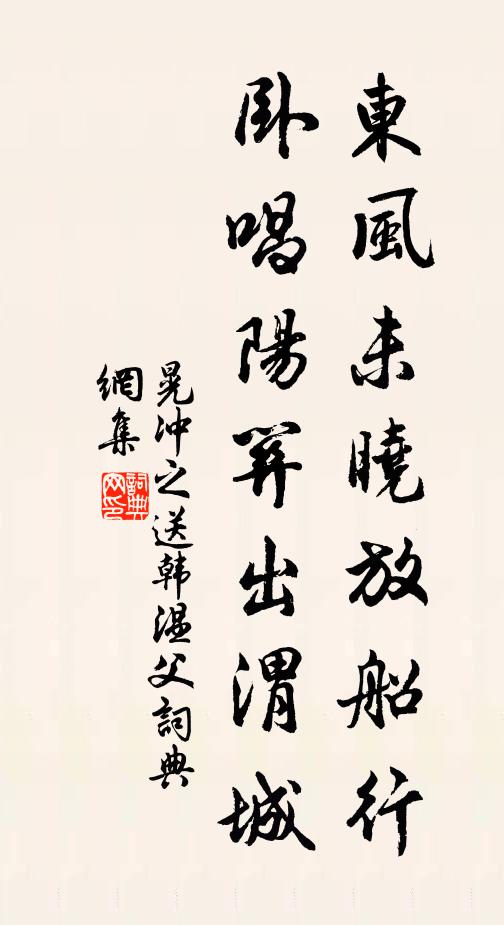 東風未曉放船行
臥唱陽關出渭城
晁沖之送韩温父詞典
網集
詞典
网印